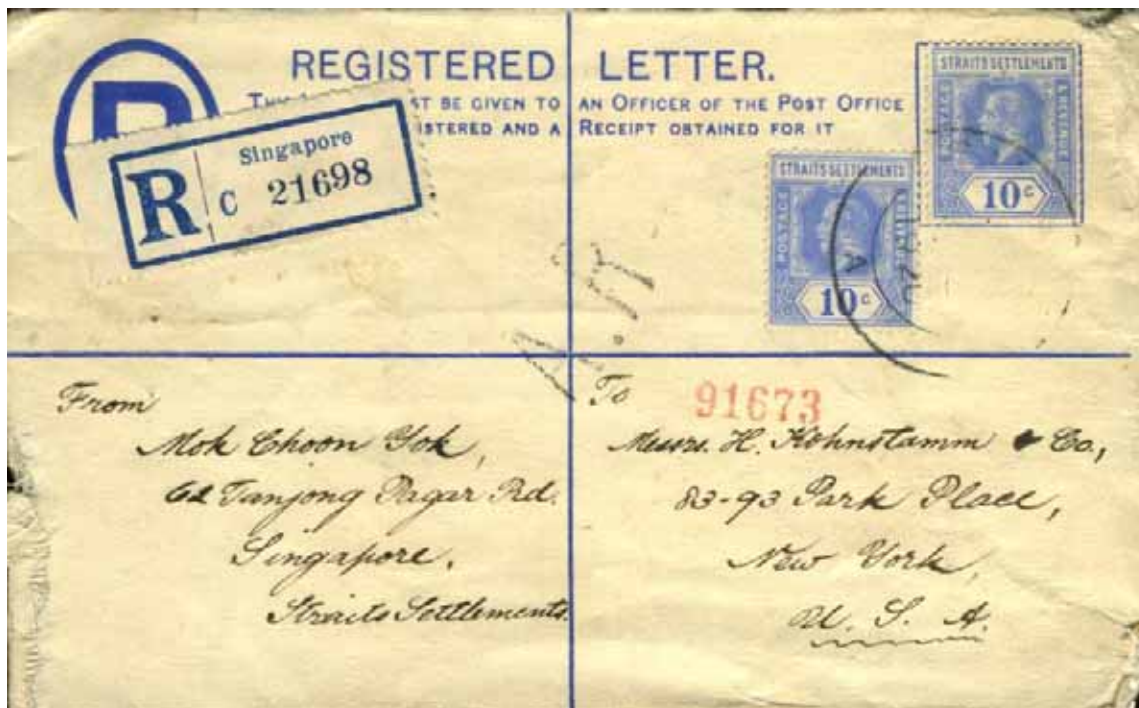 REGISTERED LETTER.
ST BE GIVEN TO AN OFFICER OF THE POST OFFICE
ISTERED AND A RECEIPT OBTAINED FOR IT
R Singapore
C 21698
STRAITS SETTLEMENTS
POSTAGE & REVENUE
10c
STRAITS SETTLEMENTS
POSTAGE
10c
A
A.R
From
Mok Choon Yok,
62 Tanjong Pagar Rd.
Singapore.
Straits Settlements.
To
91673
Messrs. H. Kohnstamm & Co.,
83-93 Park Place,
New York,
U. S. A.